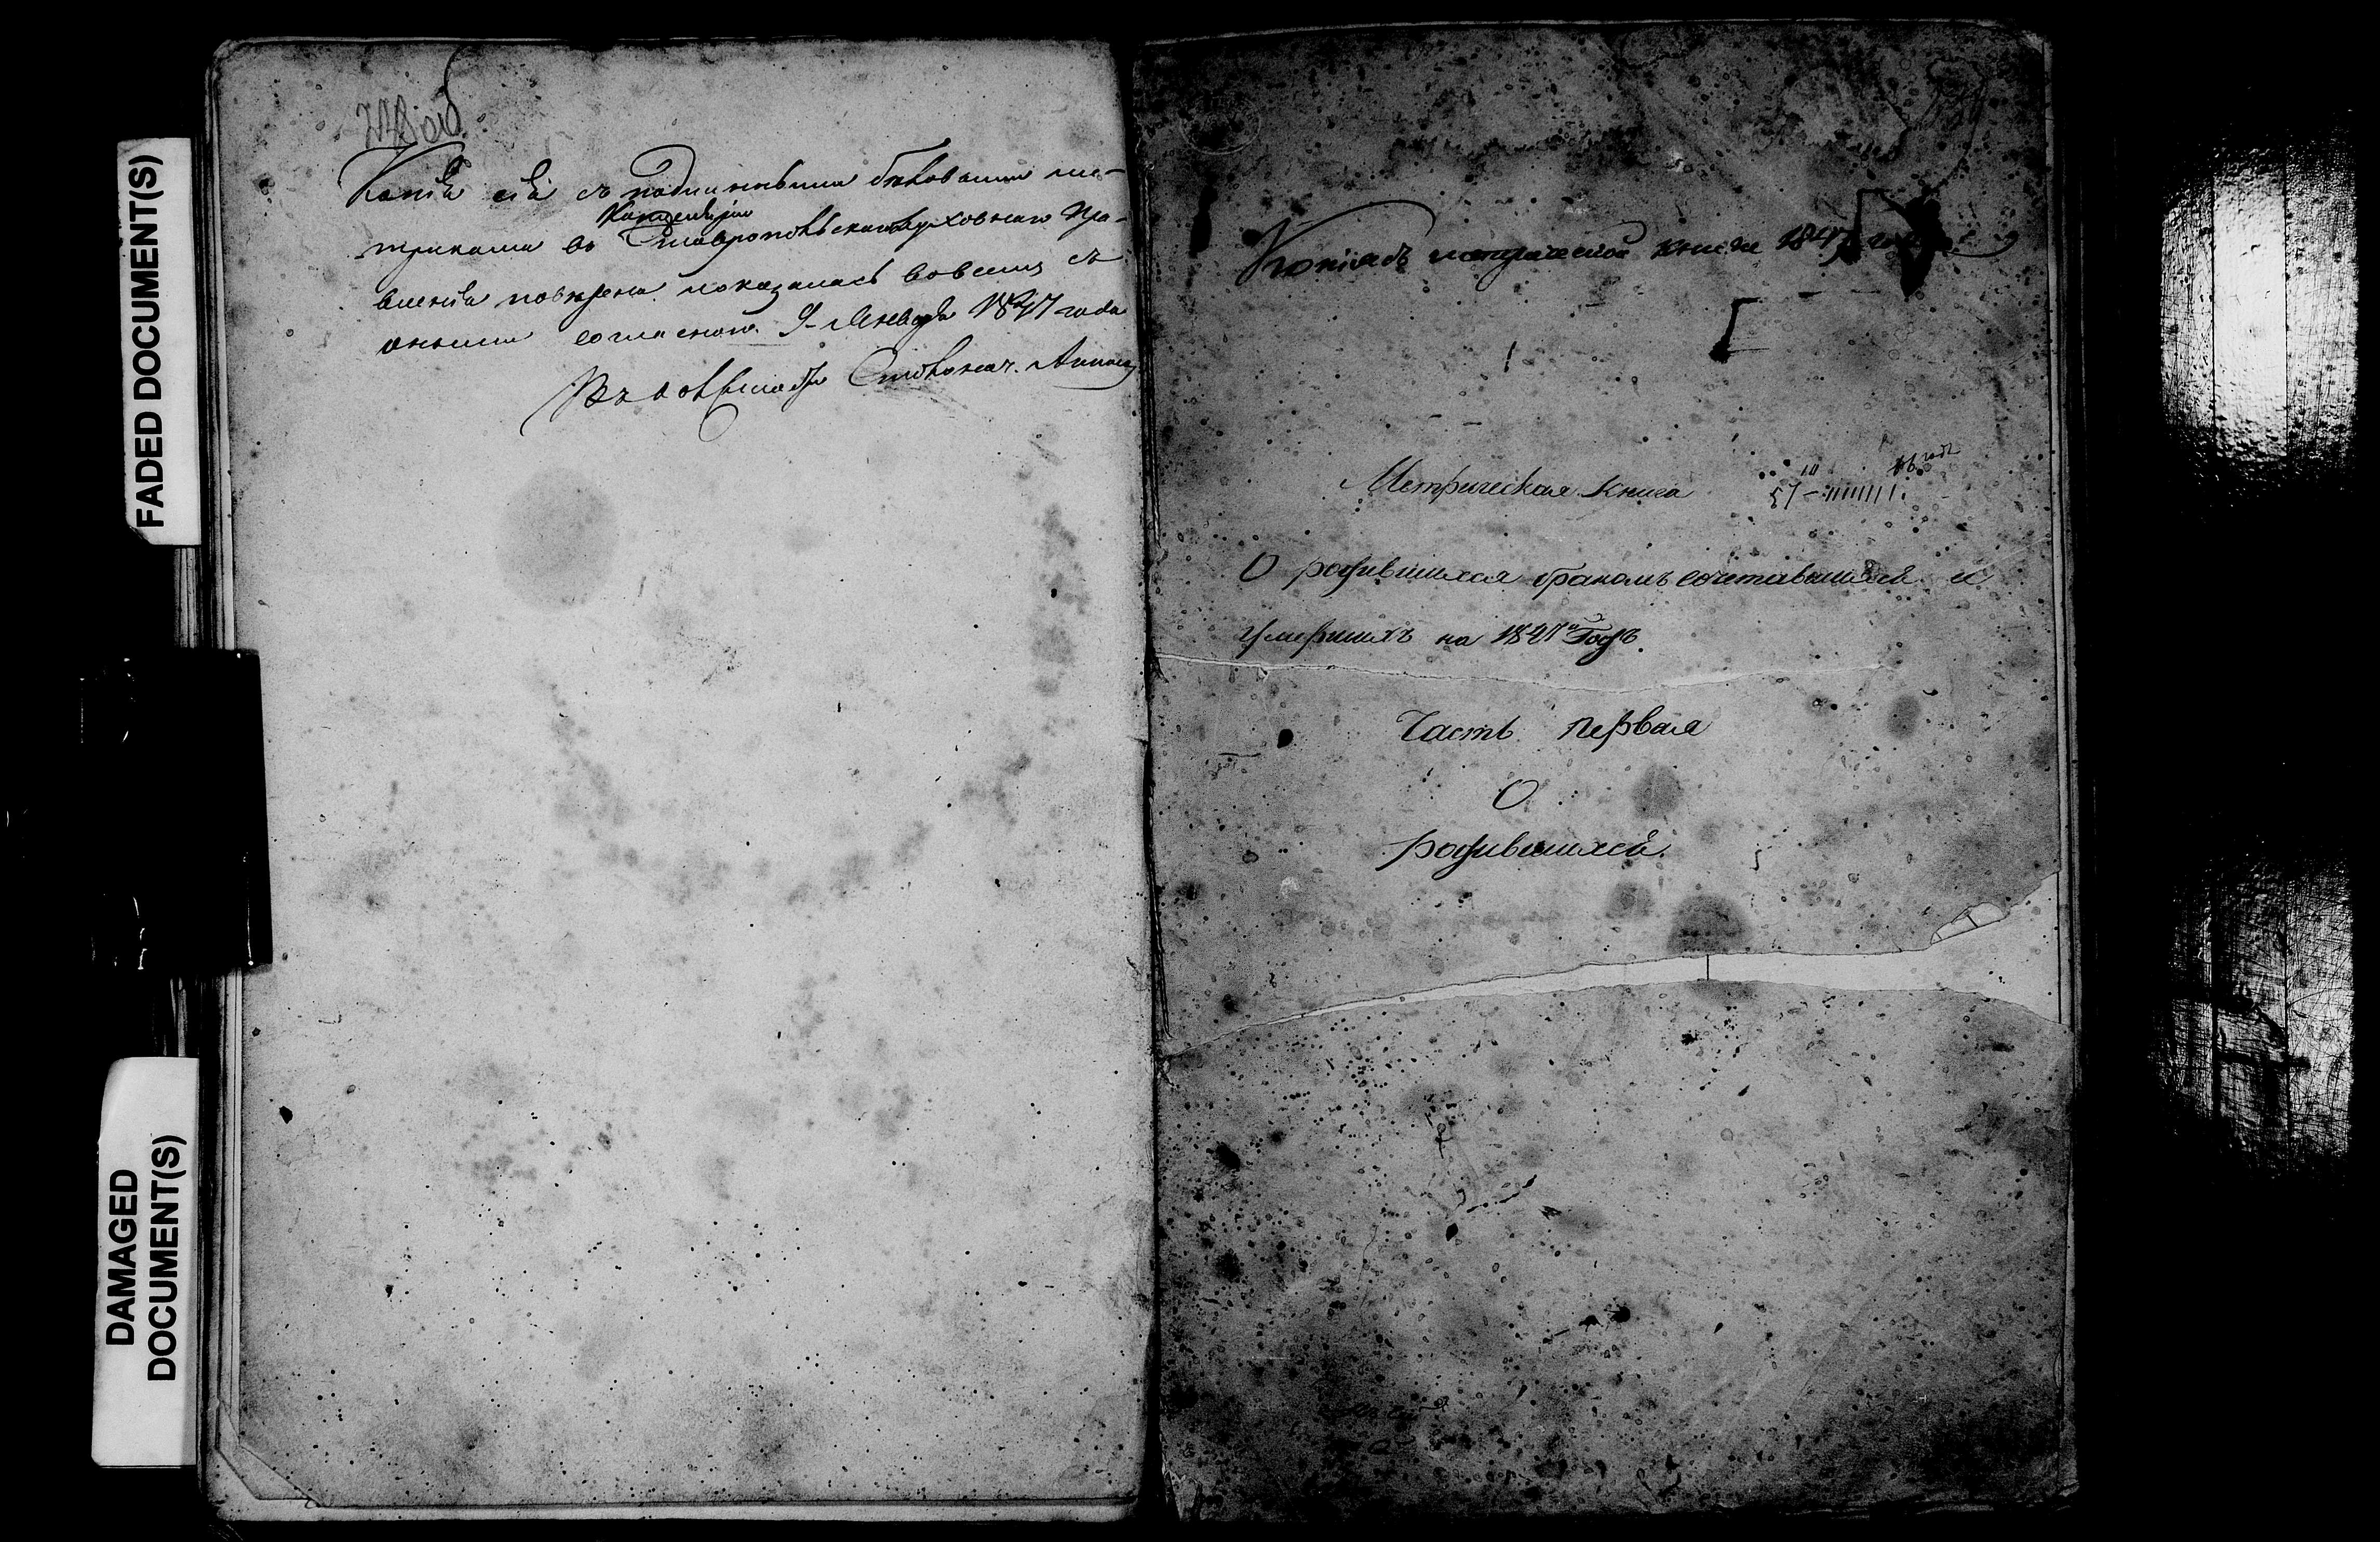 FADED DOCUMENT(S)
DAMAGED
DOCUMENT(S)
Копія сія съ подлинными бѣловыми ме-
триками въ Ставропольскаго духовнаго пра-
Канцеляріи
вленія повѣрена показалась во всемъ съ
оными согласною. 9 Января 1847 года
Столонач.
Копія съ метрической книги 1847
Метрическая книга
О родившихся бракомъ сочетавшихся и
умершихъ на 1847й Годъ.
Часть первая
О
родившихся